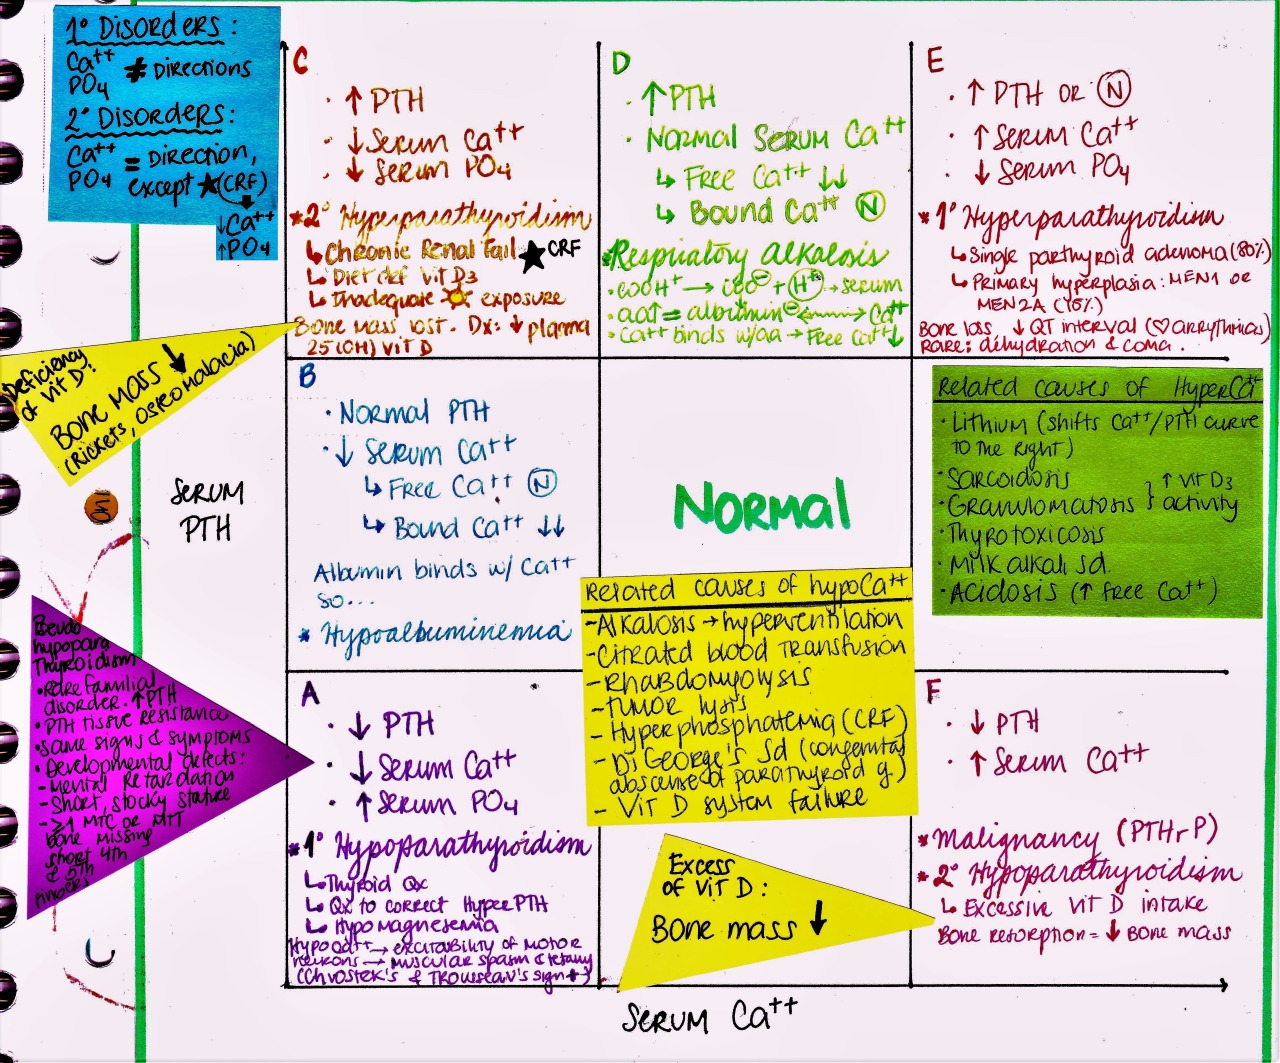 1° Disorders:
Ca++
PO4 ≠ Directions
2° Disorders:
Ca++
PO4 = Direction,
except ★(CRF)
↓Ca++
↑PO4
C
· ↑ PTH
· ↓ Serum Ca++
· ↓ Serum PO4
*2° Hyperparathyroidism
↳Chronic Renal Fail ★ CRF
↳Diet def Vit D3
↳Inadequate ☀ exposure
Bone Mass lost. Dx: ↓ plasma
25(OH) Vit D
D
· ↑PTH
· Normal Serum Ca++
↳ Free Ca++ ↓↓
↳ Bound Ca++ Ⓝ
*Respiratory Alkalosis
·COOH+ → COO⊖ + H+ → serum
·aa↑ = albumin⊖ ⟷ Ca++
·Ca++ binds w/aa → Free Ca++↓
E
· ↑ PTH or Ⓝ
· ↑ Serum Ca++
· ↓ Serum PO4
*1° Hyperparathyroidism
↳Single parthyroid adenoma (80%)
↳Primary hyperplasia: MEN1 or
MEN2A (15%)
Bone loss, ↓ QT interval (♡ arrythmias)
Rare: dehydration & coma.
Deficiency
of Vit D:
Bone Mass ↓
(Rickets, Osteomalacia)
Serum
PTH
B
· Normal PTH
· ↓ Serum Ca++
↳ Free Ca++ Ⓝ
↳ Bound Ca++ ↓↓
Albumin binds w/ Ca++
so...
* Hypoalbuminemia
Normal
Related causes of HyperCa++
·Lithium (shifts Ca++/PTH curve
to the right)
·Sarcoidosis
·Granulomatosis } ↑ Vit D3 activity
·Thyrotoxicosis
·Milk alkali sd.
·Acidosis (↑ free Ca++)
Related causes of hypoCa++
-Alkalosis → hyperventilation
-Citrated blood transfusion
-Rhabdomyolysis
-Tumor lysis
- Hyperphosphatemia (CRF)
- DiGeorge's Sd (congenital
absense of parathyroid g.)
- Vit D system failure
Pseudo
hypopara
Thyroidism
·Rare familial
disorder. ↑PTH
·PTH tissue resistance
·Same signs & symptoms
·Developmental defects:
-Mental Retardation
-Short, stocky stature
-≥1 MTC or MTT
bone missing
short 4th
& 5th
fingers
A
· ↓ PTH
· ↓ Serum Ca++
· ↑ Serum PO4
*1° Hypoparathyroidism
↳Thyroid Qx
↳Qx to correct HyperPTH
↳Hypomagnesemia
HypoCa++ → excitability of motor
neurons → muscular spasm & tetany
(Chvostek's & Trousseau's sign +)
Excess
of Vit D:
Bone mass ↓
F
· ↓ PTH
· ↑ Serum Ca++
*Malignancy (PTHrP)
*2° Hypoparathyroidism
↳ Excessive Vit D intake
Bone resorption = ↓ Bone mass
Serum Ca++